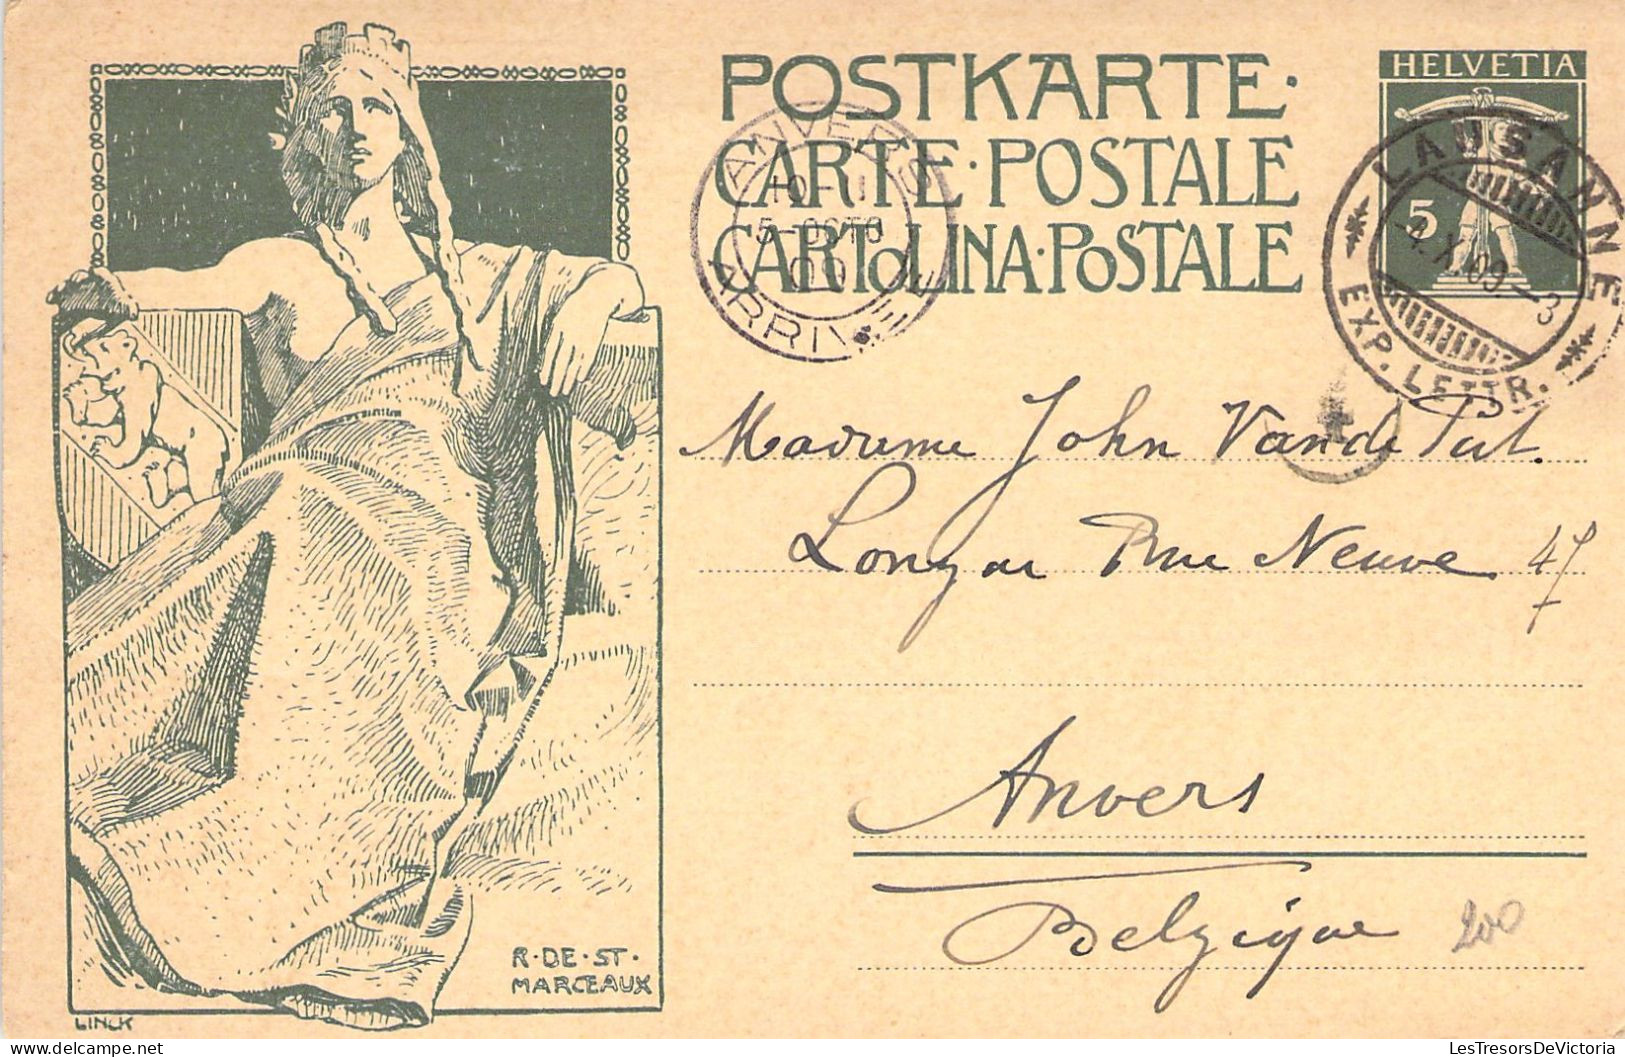 POSTKARTE·
CARTE·POSTALE
CARTOLINA·POSTALE
HELVETIA
5
LAUSANNE
4.X.09.-3
EXP. LETTR.
ANVERS
5-OCTO
09
ARRIVEE
Madame John Vande Put.
Longue Rue Neuve 47
Anvers
Belgique
200
R·DE·ST·
MARCEAUX
LINCK
LesTresorsDeVictoria